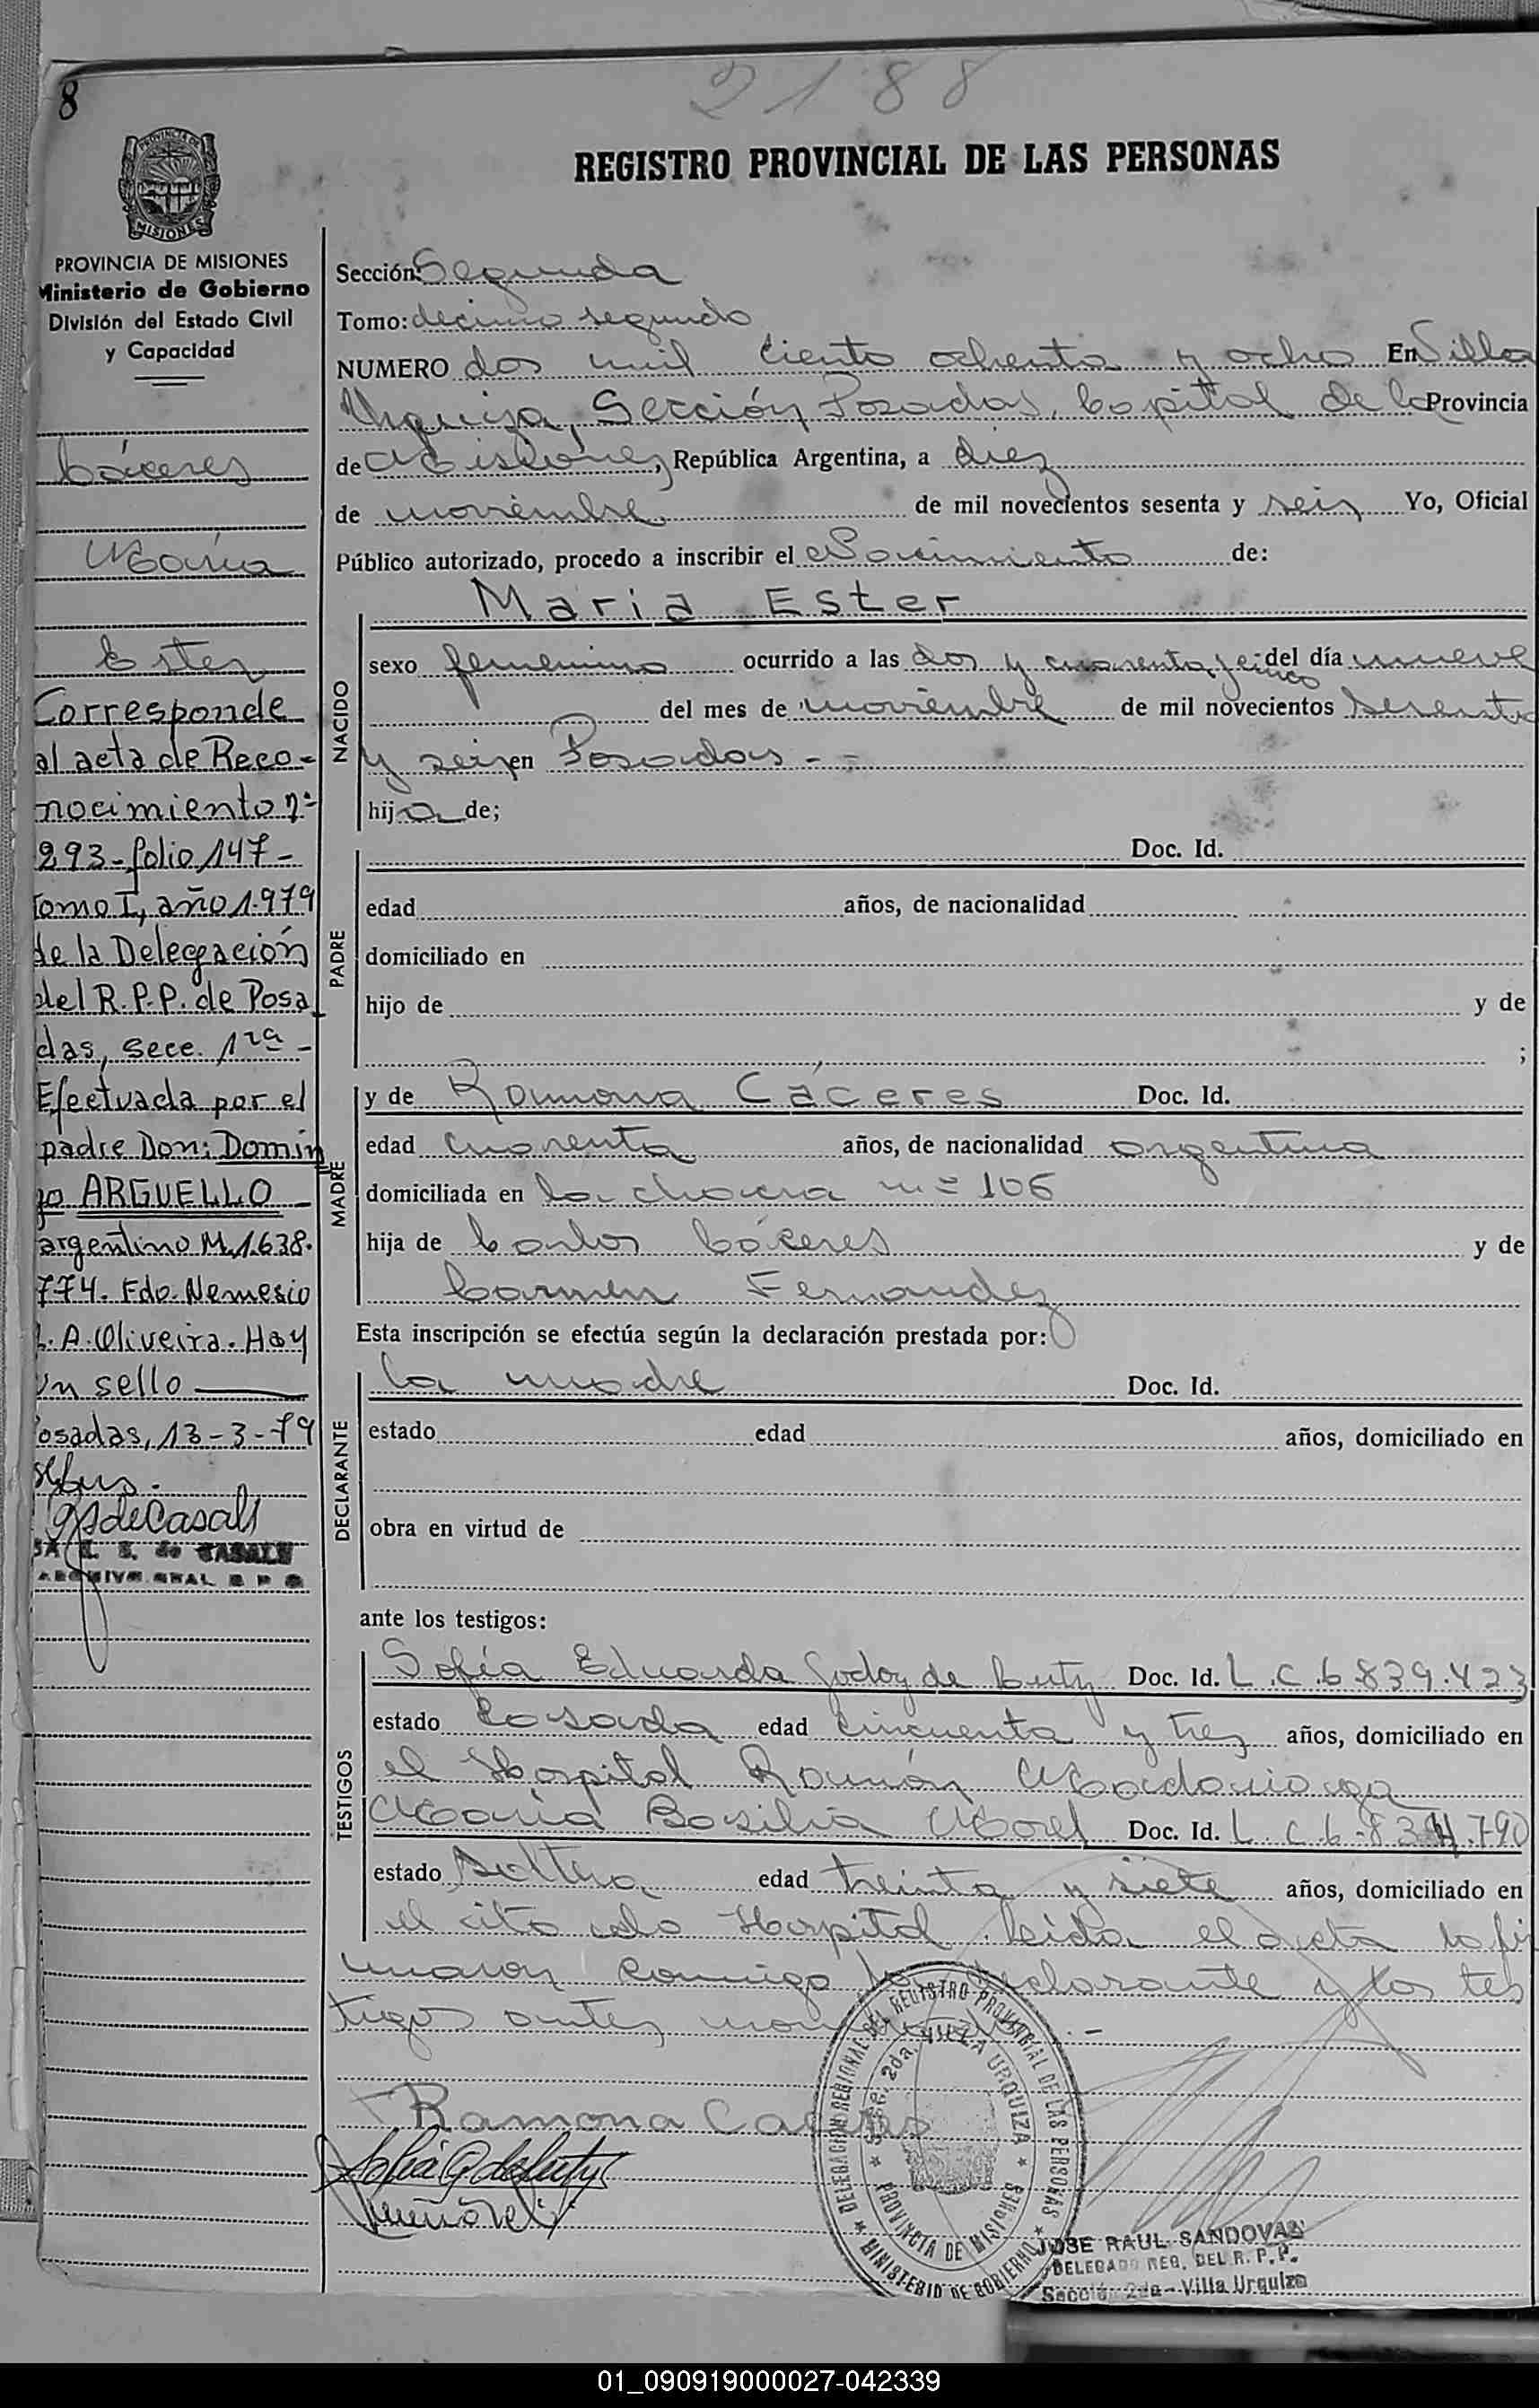 8
2188
REGISTRO PROVINCIAL DE LAS PERSONAS
PROVINCIA DE
MISIONES
PROVINCIA DE MISIONES
Ministerio de Gobierno
División del Estado Civil
y Capacidad
Cáceres
María
Ester
Corresponde
al acta de Reco-
nocimiento nº
293-folio 147-
tomo I, año 1979
de la Delegación
del R.P.P. de Posa
das, secc. 1ra -
Efectuada por el
padre Don: Domin
go ARGUELLO
argentino M.1.638.
774. Fdo. Nemesio
A. Oliveira. Hay
un sello
Posadas, 13-3-79
de CASALS
Sección: Segunda
Tomo: decimo segundo
NUMERO dos mil ciento ochenta y ocho En Villa
Urquiza, Sección Posadas, Capital de la Provincia
de Misiones, República Argentina, a diez
de noviembre de mil novecientos sesenta y seis Yo, Oficial
Público autorizado, procedo a inscribir el Nacimiento de:
Maria Ester
NACIDO
sexo femenino ocurrido a las dos y cuarenta y cinco del día nueve
del mes de noviembre de mil novecientos sesenta
y seis en Posadas - -
hija de;
PADRE
Doc. Id.
edad años, de nacionalidad
domiciliado en
hijo de y de
;
MADRE
y de Ramona Cáceres Doc. Id.
edad cuarenta años, de nacionalidad argentina
domiciliada en la chacra nº 106
hija de Carlos Cáceres y de
Carmen Fernandez
Esta inscripción se efectúa según la declaración prestada por:
DECLARANTE
la madre Doc. Id.
estado edad años, domiciliado en
obra en virtud de
ante los testigos:
TESTIGOS
Sofía Eduarda Godoy de Cuty Doc. Id. L.C.6.839.423
estado casada edad cincuenta y tres años, domiciliado en
el Hospital Ramón Madariaga
María Basilia Morel Doc. Id. L.C.6.834.790
estado soltera edad treinta y siete años, domiciliado en
el citado Hospital. Leida el acta la fir
maron conmigo la declarante y los tes
tigos antes
Ramona Caceres
DELEGACION REGIONAL DEL REGISTRO PROVINCIAL DE LAS PERSONAS
Secc. 2da. VILLA URQUIZA
PROVINCIA DE MISIONES
MINISTERIO DE GOBIERNO
JOSE RAUL SANDOVAL
DELEGADO REG. DEL R. P. P.
Sección 2da - Villa Urquiza
01_090919000027-042339